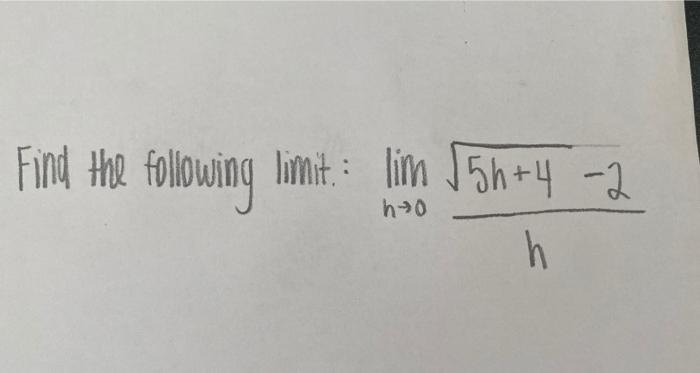 Find the following limit.: lim h→0 √5h+4 -2 / h